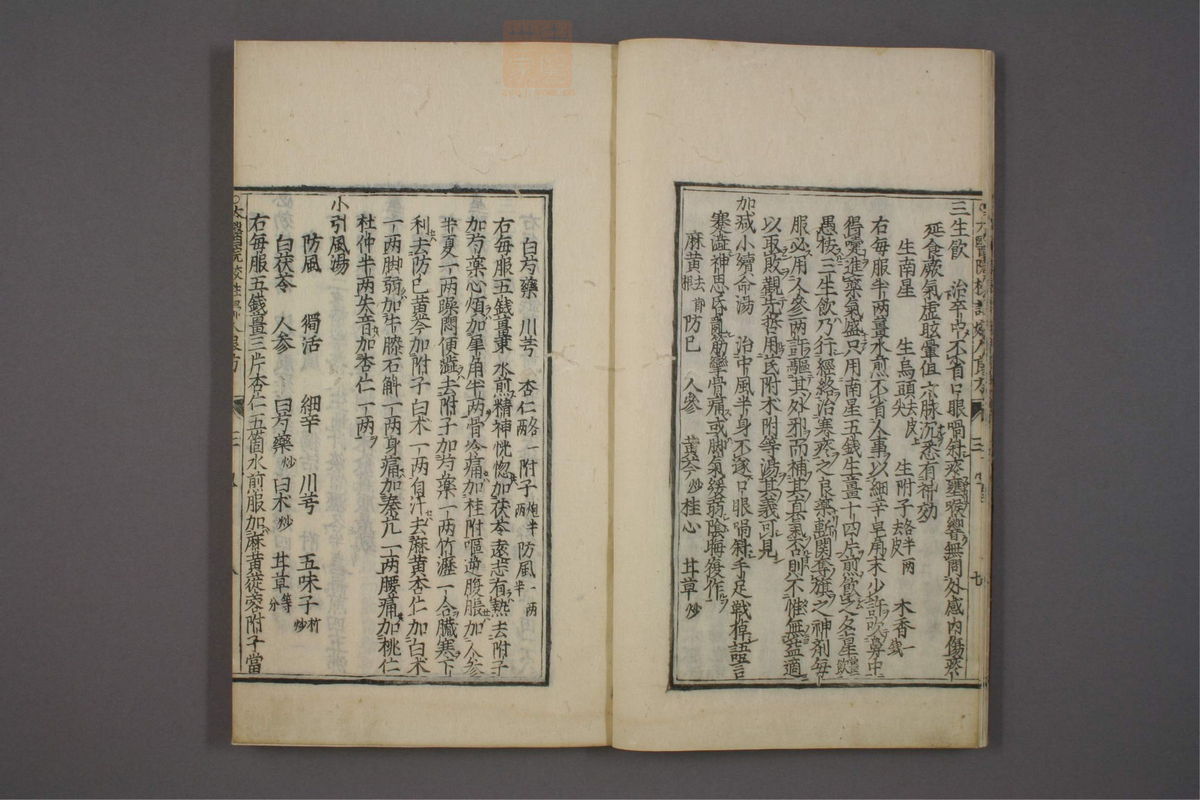 三生飲 治卒中不省口眼喎斜痰壅喉響無問外感內傷痰
延食厥氣虛眩暈但六脉沉悉有神効
生南星 生烏頭去皮尖 生附子去皮各半兩 木香一錢
右每服半兩薑水煎不省人事以細辛皂角末少許吹鼻中
得嚏進藥氣盛只用南星五錢生薑十四片煎飲名星
愚按三生飲乃行經絡治寒痰之良藥斬関奪旗之神剂每
服必用人參兩許驅其外邪而補其真氣否則不惟無益適
以取敗觀先哲用芪附木附等湯其義可見
加减小續命湯 治中風半身不遂口眼喎斜手足戰掉語言
蹇澁神思昏亂筋攣骨痛或脚氣緩弱陰晦復作
麻黄去節根 防巳 人參 黄芩炒 桂心 甘草炒
白芍藥 川芎 杏仁各一兩 附子炮半兩 防風一兩半
右每服五錢薑棗水煎精神恍惚加茯苓遠志有熱去附子
加芍藥心煩加犀角半兩骨冷痛加桂附嘔逆腹脹加人參
半夏一兩躁悶便澁去附子加芍藥一兩竹瀝一合臓寒下
利去防己黄芩加附子白术一兩自汗去蔴黄杏仁加白术
一兩脚弱加牛膝石斛一兩身痛加秦艽一兩腰痛加桃仁
杜仲半兩失音加杏仁一兩
小引風湯
防風 獨活 細辛 川芎 五味子杵炒
白茯苓 人參 白芍藥炒 白术炒 甘草等分
右每服五錢薑三片杏仁五箇水煎服加麻黄蓯蓉附子當